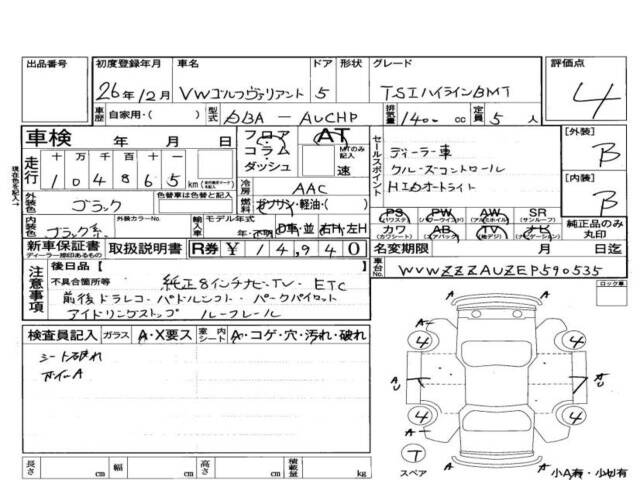 出品番号 初度登録年月 車名 ドア 形状 グレード 評価点
26年12月 VWゴルフヴァリアント 5 TSIハイラインBMT 4
車歴 自家用・( ) 型式 DBA-AUCHP 排気量 1400 cc 定員 5 人
現在色を記入
車検 年 月 日 フロア コラム ダッシュ AT MTのみ記入 速
セールスポイント ディーラー車
クルーズコントロール
HIDオートライト
[外装] B
[内装] B
走行 十 万 千 百 十 一
104865 km
冷房 AAC
外装色 ブラック 色替車は色替と記入
燃料 ガソリン・軽油・( )
内装色 ブラック系 外装カラーNo. 輸入車 モデル年式 年・不明 D車・並 右H・左H
PS (パワステ) PW (パワーウインド) AW (アルミホイル) SR (サンルーフ)
カワ (カワシート) AB (エアバック) TV (地デジ) ナビ (ナビゲーション)
純正品のみ丸印
新車保証書 ディーラー捺印あるもの 取扱説明書 R券 ¥14,940
名変期限 月 日迄
車台No. WVWZZZAUZEP590535
ロック車
注意事項 後日品[ ]
不具合箇所等 純正8インチナビ・TV・ETC
前後ドラレコ・パドルシフト・パークパイロット
アイドリングストップ ルーフレール
検査員記入 ガラス A・X要ス 室内シート A・コゲ・穴・汚れ・破れ
シート破れ
ホイルA
A A
A 4 4 A
A U
4 4
A A
T
スペア
小A有・小凹有
長さ cm 幅 cm 高さ cm 積載量 kg